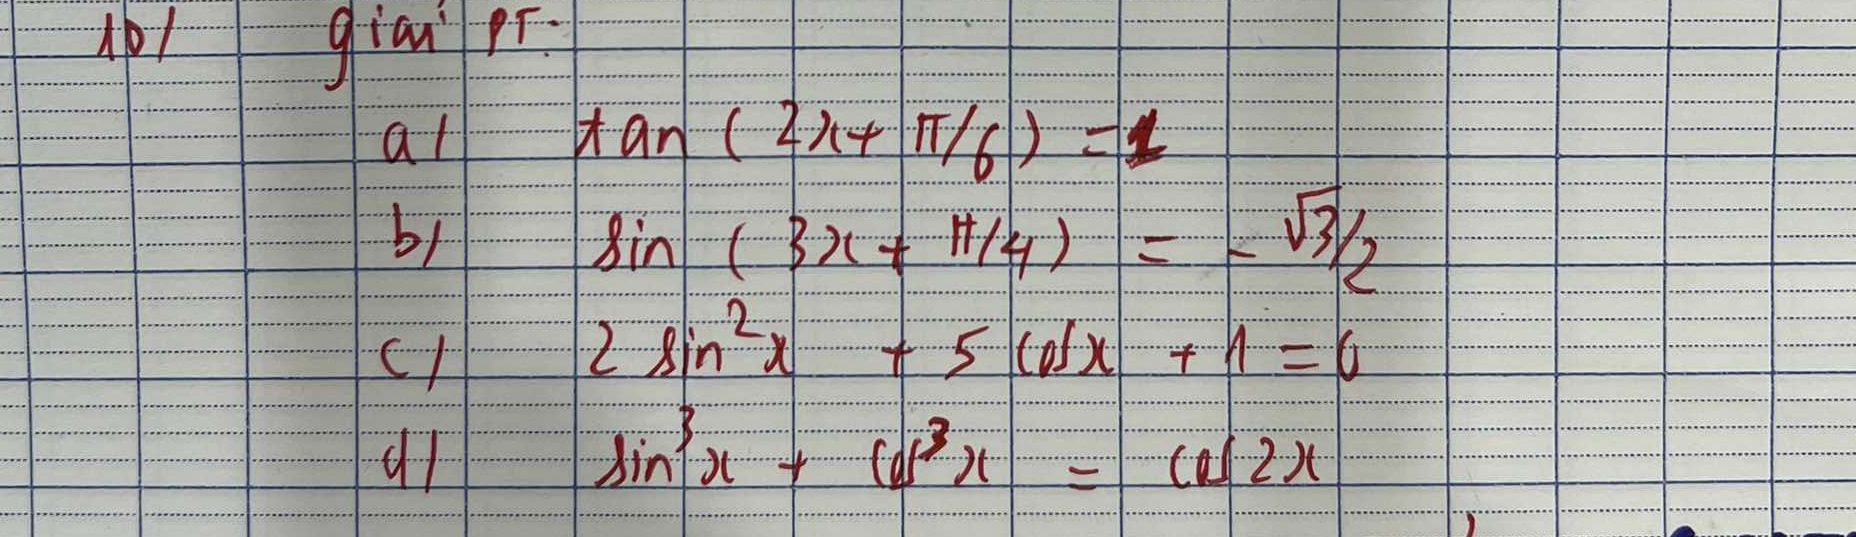 10/ giải PT:
a/ tan ( 2x + π/6 ) = 1
b/ sin ( 3x + π/4 ) = - √3/2
c/ 2 sin²x + 5 cosx + 1 = 0
d/ sin³x + cos³x = cos 2x